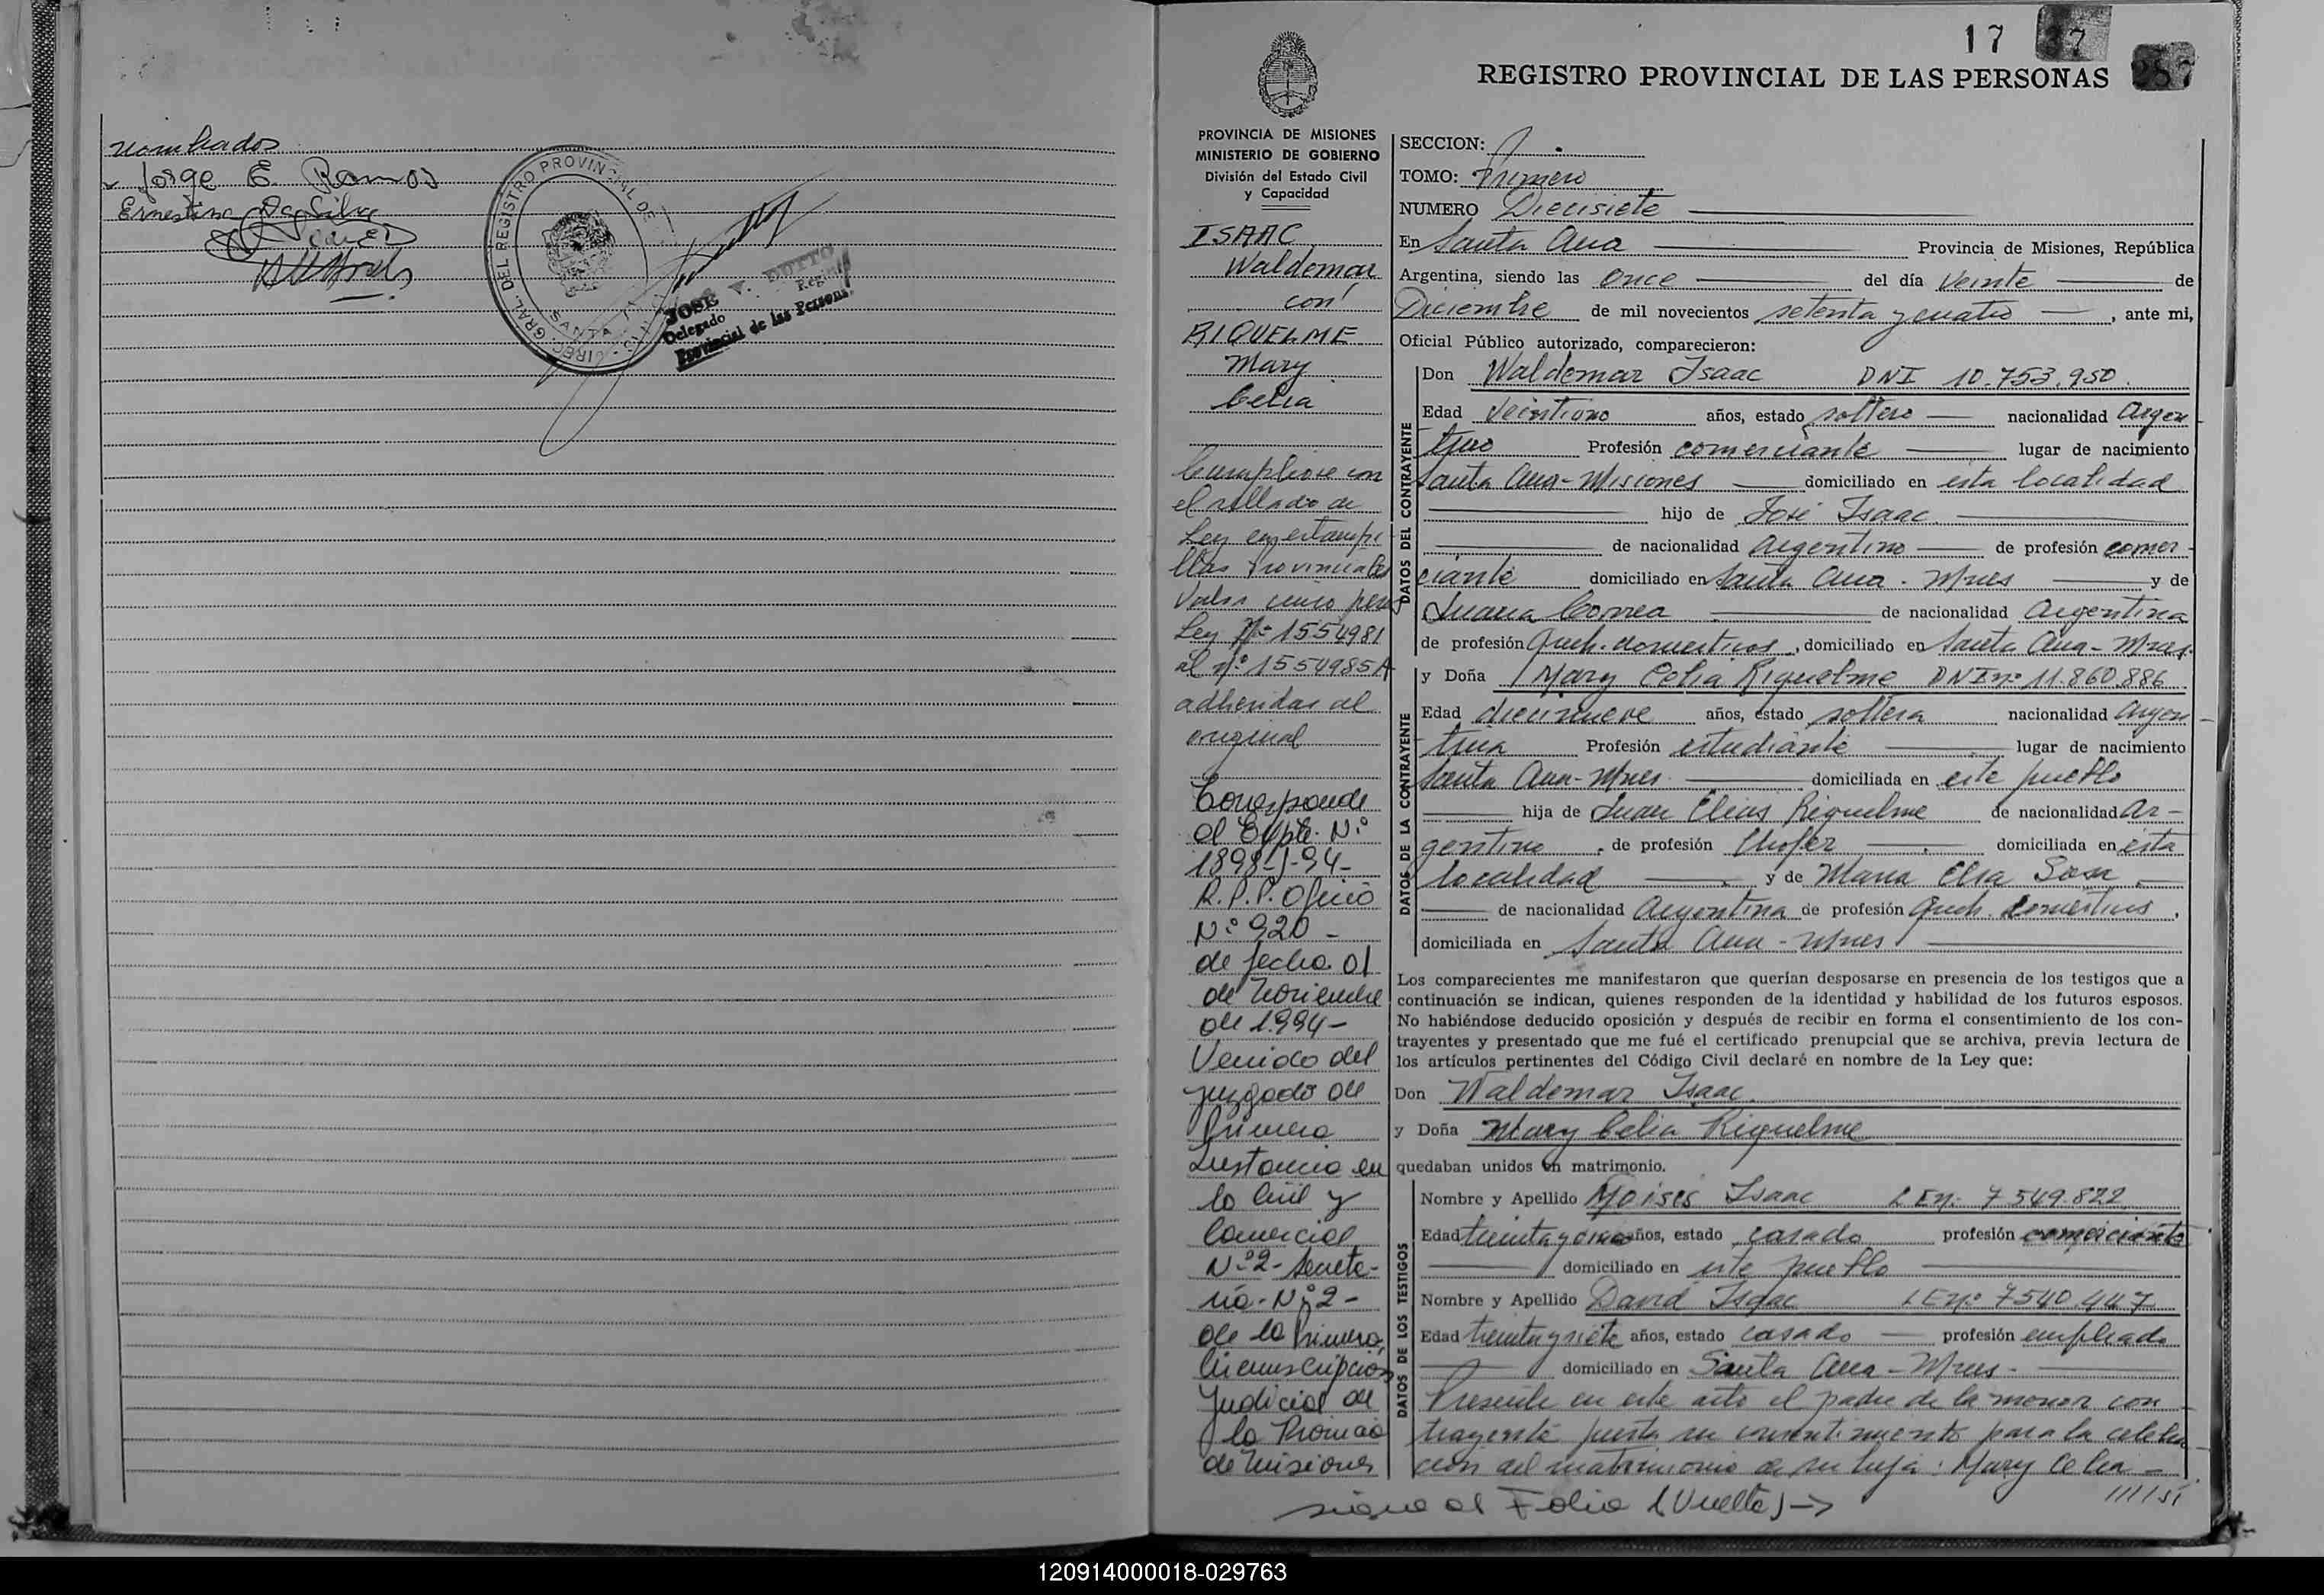 nombrados
Jorge E. Ramos
Ernestina Da Silva
DIREC. GRAL. DEL REGISTRO PROVINCIAL DE
SANTA
JOSE V. DUTTO
Delegado Reg.
Provincial de las Personas
17 37
REGISTRO PROVINCIAL DE LAS PERSONAS 287
PROVINCIA DE MISIONES
MINISTERIO DE GOBIERNO
División del Estado Civil
y Capacidad
ISAAC
Waldemar
con
RIQUELME
Mary
Celia
Cumpliose con
el sellado de
Ley en estampi
llas Provinciales
Valor cinco pesos
Ley Nº 1554981
al nº 1554985A
adheridas al
original
Corresponde
al Expte. Nº
1898-J-94-
R.P.P. Oficio
Nº 920-
de fecha 01
de Noviembre
de 1994-
Venido del
Juzgado de
Primera
Instancia en
lo Civil y
Comercial
Nº 2- Secreta-
ría-Nº 2-
de la Primera
Circunscripcion
Judicial de
la Provincia
de Misiones
SECCION:
TOMO: Primero
NUMERO Diecisiete
En Santa Ana Provincia de Misiones, República
Argentina, siendo las once del día veinte de
Diciembre de mil novecientos setenta y cuatro, ante mi,
Oficial Público autorizado, comparecieron:
DATOS DEL CONTRAYENTE
Don Waldemar Isaac DNI 10.753.950.
Edad veintiuno años, estado soltero nacionalidad Argen
tino Profesión comerciante lugar de nacimiento
Santa Ana-Misiones domiciliado en esta localidad
hijo de José Isaac
de nacionalidad Argentino de profesión comer-
ciante domiciliado en Santa Ana - Mnes y de
Juana Correa de nacionalidad Argentina
de profesión Queh. domesticos, domiciliado en Santa Ana - Mnes.
DATOS DE LA CONTRAYENTE
y Doña Mary Celia Riquelme DNI nº 11.860.886
Edad diecinueve años, estado soltera nacionalidad Argen-
tina Profesión estudiante lugar de nacimiento
Santa Ana-Mnes. domiciliada en este pueblo
hija de Juan Elias Riquelme de nacionalidad Ar-
gentino, de profesión Chofer domiciliada en esta
localidad y de Maria Elsa Sosa
de nacionalidad Argentina de profesión Queh. domesticos,
domiciliada en Santa Ana - Mnes
Los comparecientes me manifestaron que querían desposarse en presencia de los testigos que a
continuación se indican, quienes responden de la identidad y habilidad de los futuros esposos.
No habiéndose deducido oposición y después de recibir en forma el consentimiento de los con-
trayentes y presentado que me fué el certificado prenupcial que se archiva, previa lectura de
los artículos pertinentes del Código Civil declaré en nombre de la Ley que:
Don Waldemar Isaac.
y Doña Mary Celia Riquelme
quedaban unidos en matrimonio.
DATOS DE LOS TESTIGOS
Nombre y Apellido Moises Isaac L En: 7.549.822
Edad treinta y años, estado casado profesión comerciante
domiciliado en este pueblo
Nombre y Apellido David Isaac L Enº 7540.447
Edad treinta y siete años, estado casado profesión empleado
domiciliado en Santa Ana - Mnes-
Presente en este acto el padre de la menor con-
trayente presta su consentimiento para la celebra
cion del matrimonio de su hija: Mary Celia -
sigue al Folio (Vuelta) ->
120914000018-029763